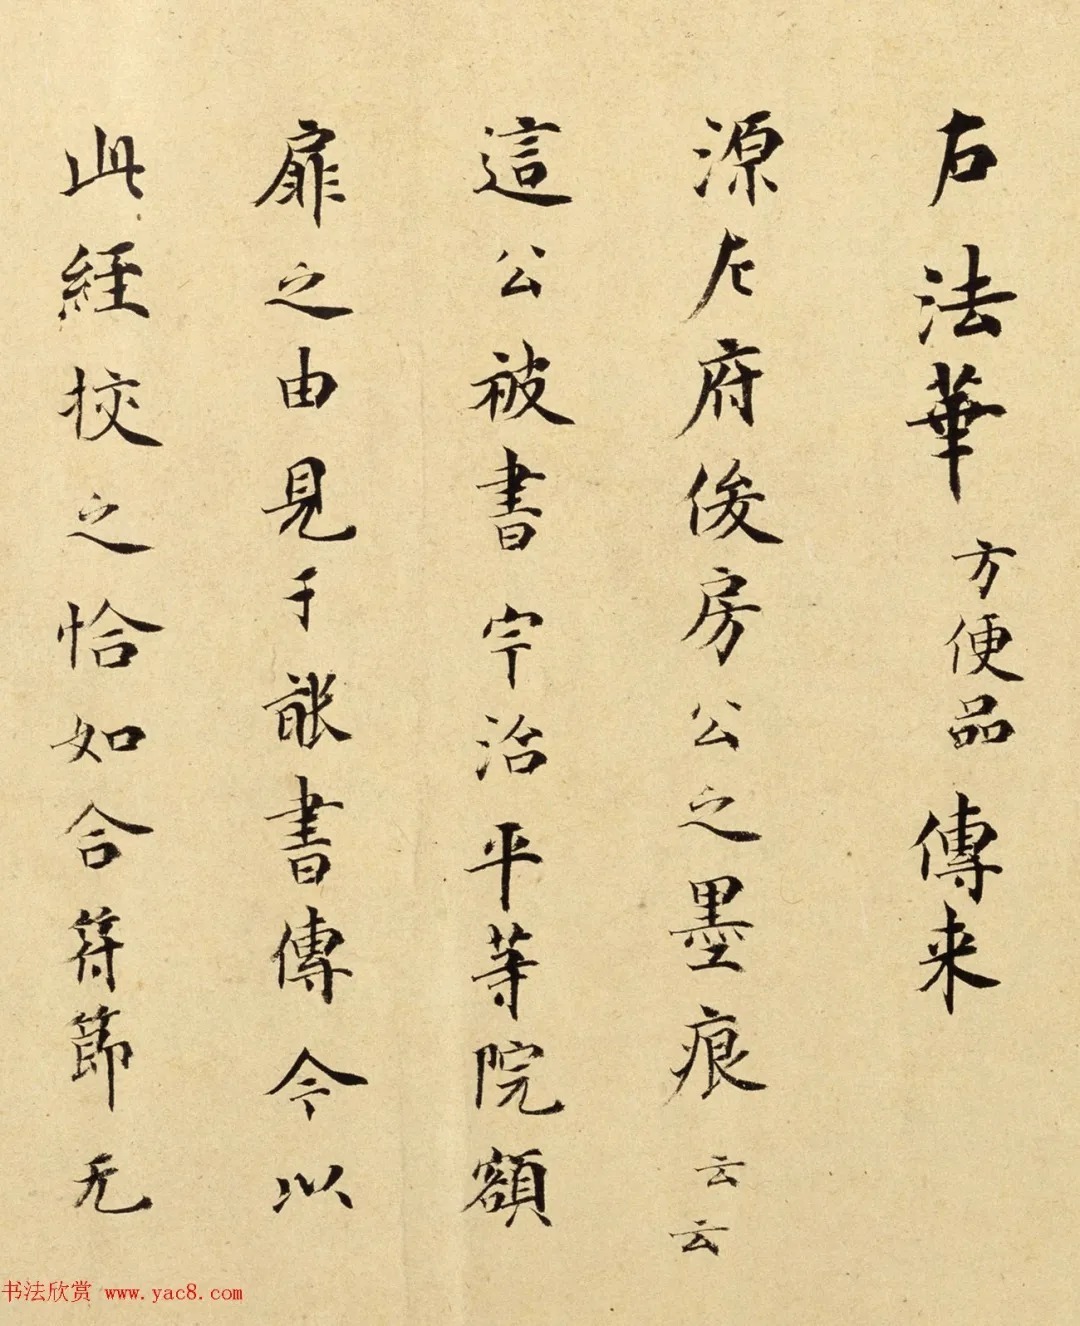 右法華方便品傳来
源左府俊房公之墨痕云云
這公被書宇治平等院額
扉之由見于能書傳今以
此經挍之恰如合符節无
书法欣赏 www.yac8.com